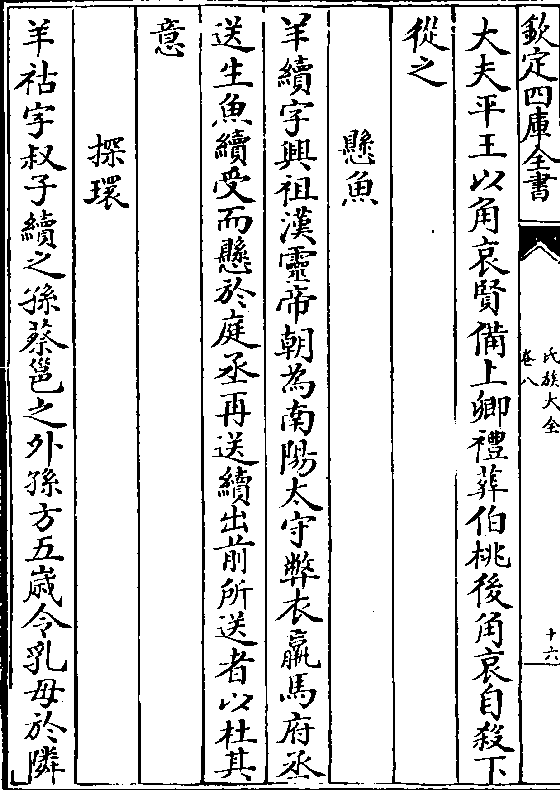 欽定四庫全書
氏族大全
卷八
十六
大夫平王以角哀賢備上卿禮葬伯桃後角哀自殺下
從之
懸魚
羊續字興祖漢靈帝朝為南陽太守弊衣羸馬府丞
送生魚續受而懸於庭丞再送續出前所送者以杜其
意
探環
羊祜字叔子續之孫蔡邕之外孫方五歲令乳母於隣